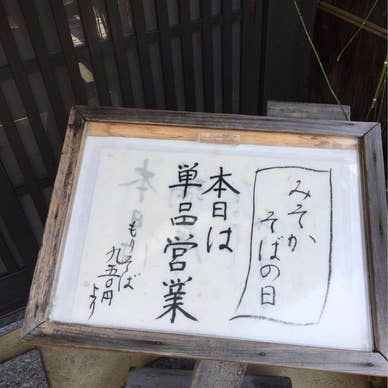 みそか
そばの日
本日は
単品営業
もりそば
九五〇円
より